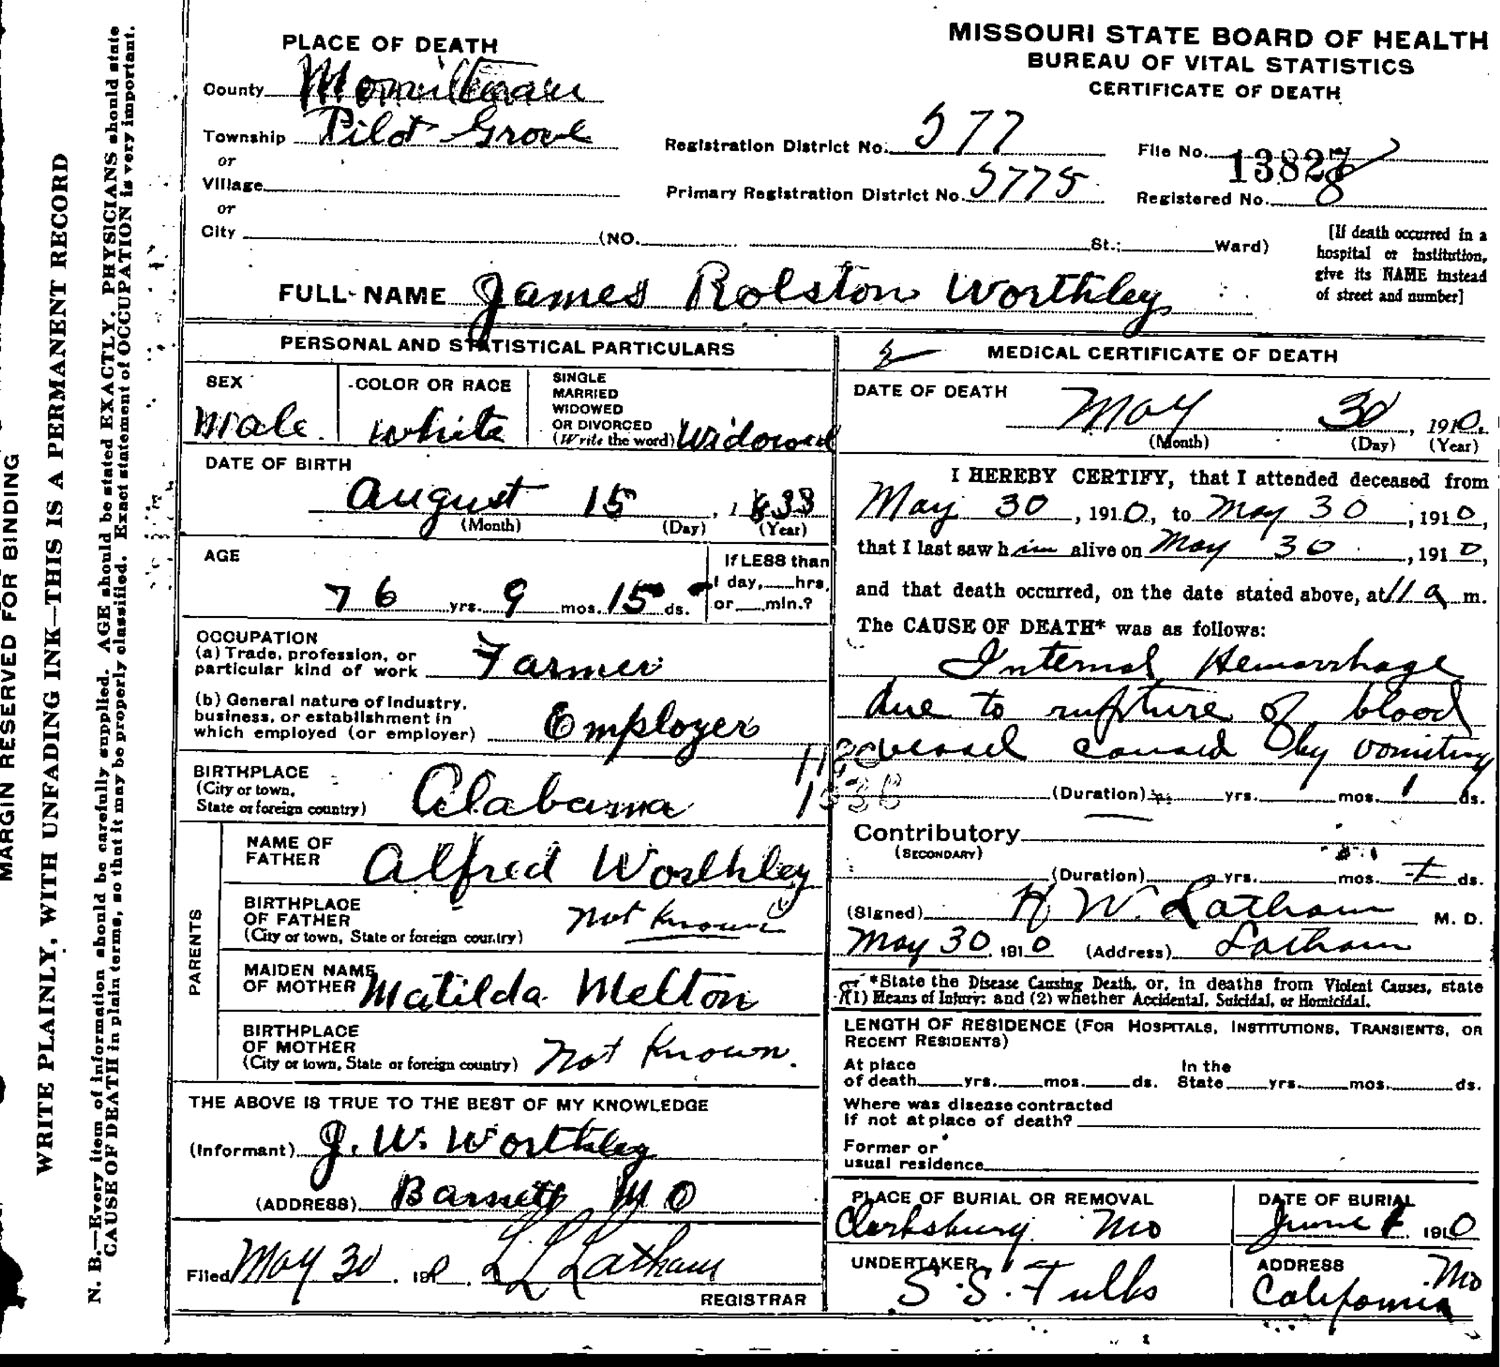 MISSOURI STATE BOARD OF HEALTH
BUREAU OF VITAL STATISTICS
CERTIFICATE OF DEATH
PLACE OF DEATH
County
Township Pilot Grove
or
Village
or
City (NO. St.; Ward)
Registration District No. 577
Primary Registration District No. 5775
File No. 13827
Registered No. 8
[If death occurred in a
hospital or institution,
give its NAME instead
of street and number]
FULL NAME James Rolston Worthley
PERSONAL AND STATISTICAL PARTICULARS
SEX
Male
COLOR OR RACE
White
SINGLE
MARRIED
WIDOWED
OR DIVORCED
(Write the word) Widowed
DATE OF BIRTH
August 15, 1833
(Month) (Day) (Year)
AGE
76 yrs. 9 mos. 15 ds.
If LESS than
1 day, hrs.
or min.?
OCCUPATION
(a) Trade, profession, or
particular kind of work Farmer
(b) General nature of Industry,
business, or establishment in
which employed (or employer) Employer
BIRTHPLACE
(City or town,
State or foreign country) Alabama
PARENTS
NAME OF
FATHER Alfred Worthley
BIRTHPLACE
OF FATHER
(City or town, State or foreign country) Not Known
MAIDEN NAME
OF MOTHER Matilda Melton
BIRTHPLACE
OF MOTHER
(City or town, State or foreign country) Not Known.
THE ABOVE IS TRUE TO THE BEST OF MY KNOWLEDGE
(Informant) J. W. Worthley
(ADDRESS) Barnett MO
Filed May 30, 191 L L Latham
REGISTRAR
MEDICAL CERTIFICATE OF DEATH
DATE OF DEATH
May 30, 1910.
(Month) (Day) (Year)
I HEREBY CERTIFY, that I attended deceased from
May 30, 1910, to May 30, 1910,
that I last saw him alive on May 30, 1910,
and that death occurred, on the date stated above, at 11 a m.
The CAUSE OF DEATH* was as follows:
Internal Hemorrhage
due to rupture of blood
vessel caused by vomiting
(Duration) yrs. mos. 1 ds.
Contributory
(SECONDARY)
(Duration) yrs. mos. ds.
(Signed) H W. Latham M. D.
May 30, 1910 (Address) Latham
*State the Disease Causing Death, or, in deaths from Violent Causes, state
(1) Means of Injury; and (2) whether Accidental, Suicidal, or Homicidal.
LENGTH OF RESIDENCE (FOR HOSPITALS, INSTITUTIONS, TRANSIENTS, OR
RECENT RESIDENTS)
At place
of death yrs. mos. ds.
In the
State yrs. mos. ds.
Where was disease contracted
if not at place of death?
Former or
usual residence
PLACE OF BURIAL OR REMOVAL
Clarksburg Mo
DATE OF BURIAL
June 1 1910
UNDERTAKER
S. S. Fulks
ADDRESS
California Mo
MARGIN RESERVED FOR BINDING
WRITE PLAINLY, WITH UNFADING INK—THIS IS A PERMANENT RECORD
N. B.—Every item of information should be carefully supplied. AGE should be stated EXACTLY. PHYSICIANS should state
CAUSE OF DEATH in plain terms, so that it may be properly classified. Exact statement of OCCUPATION is very important.